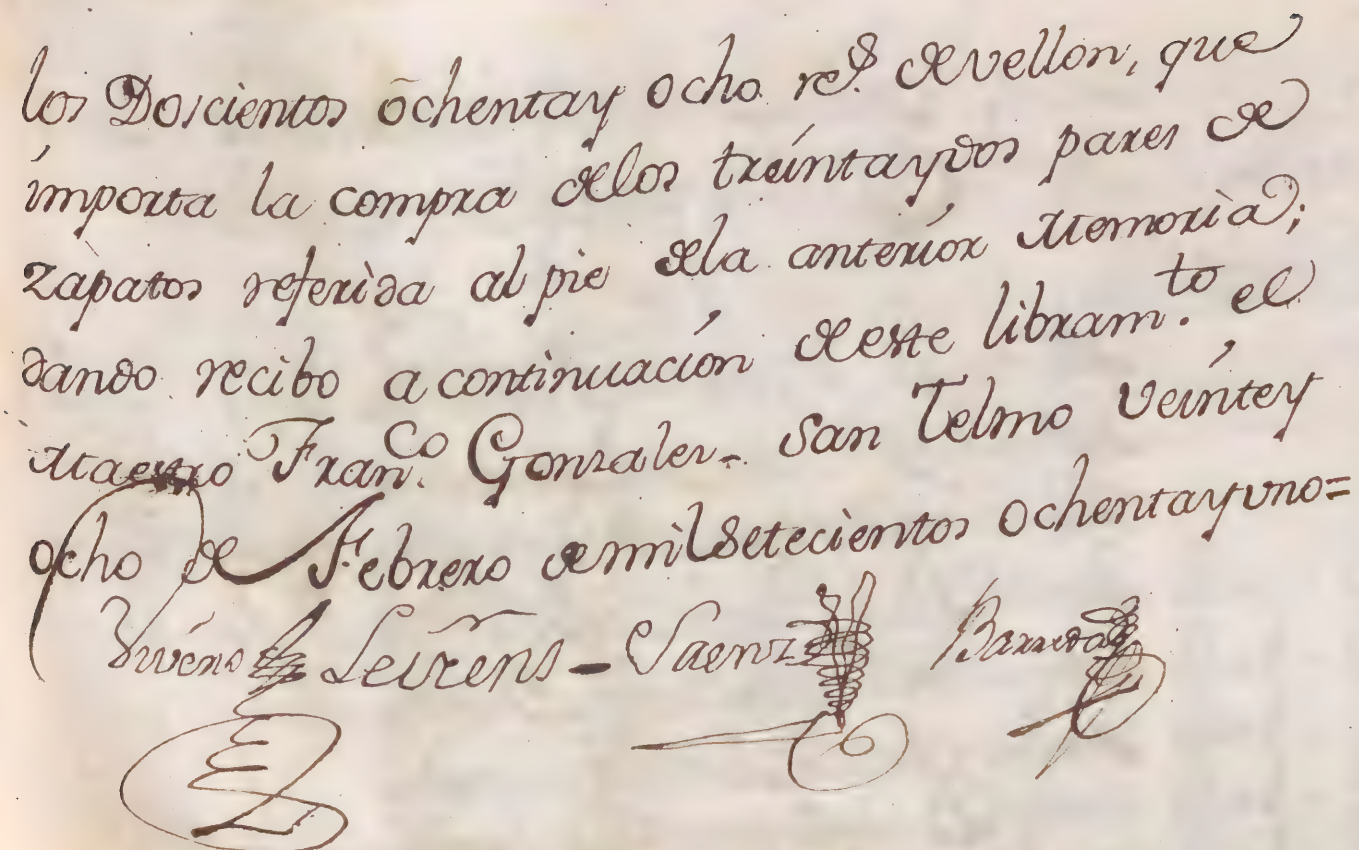 los Doscientos ochentay ocho r.ˢ devellon, que
importa la compra delos treintaydos pares de
zapatos referida al pie dela anterior Memoria;
dando recibo a continuación deeste libram.ᵗᵒ el
Maestro Fran.ᶜᵒ Gonzalez. San Telmo veintey
ocho de Febrero demil Setecientos ochentayuno=
Leirens - Saenz